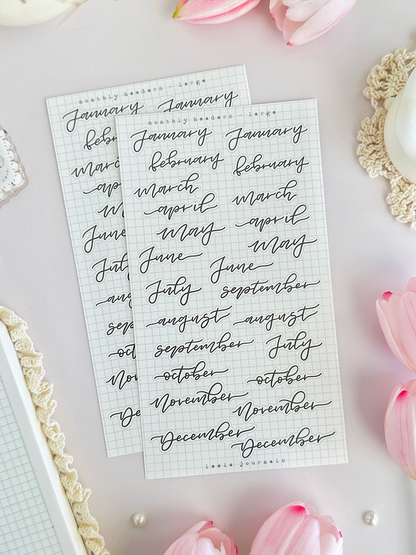 monthly headers - large
January January
february
march
monthly headers - large
January January
february february
march march
april april
May May
June June
July september
august august
september July
october october
November November
December December
leele journals